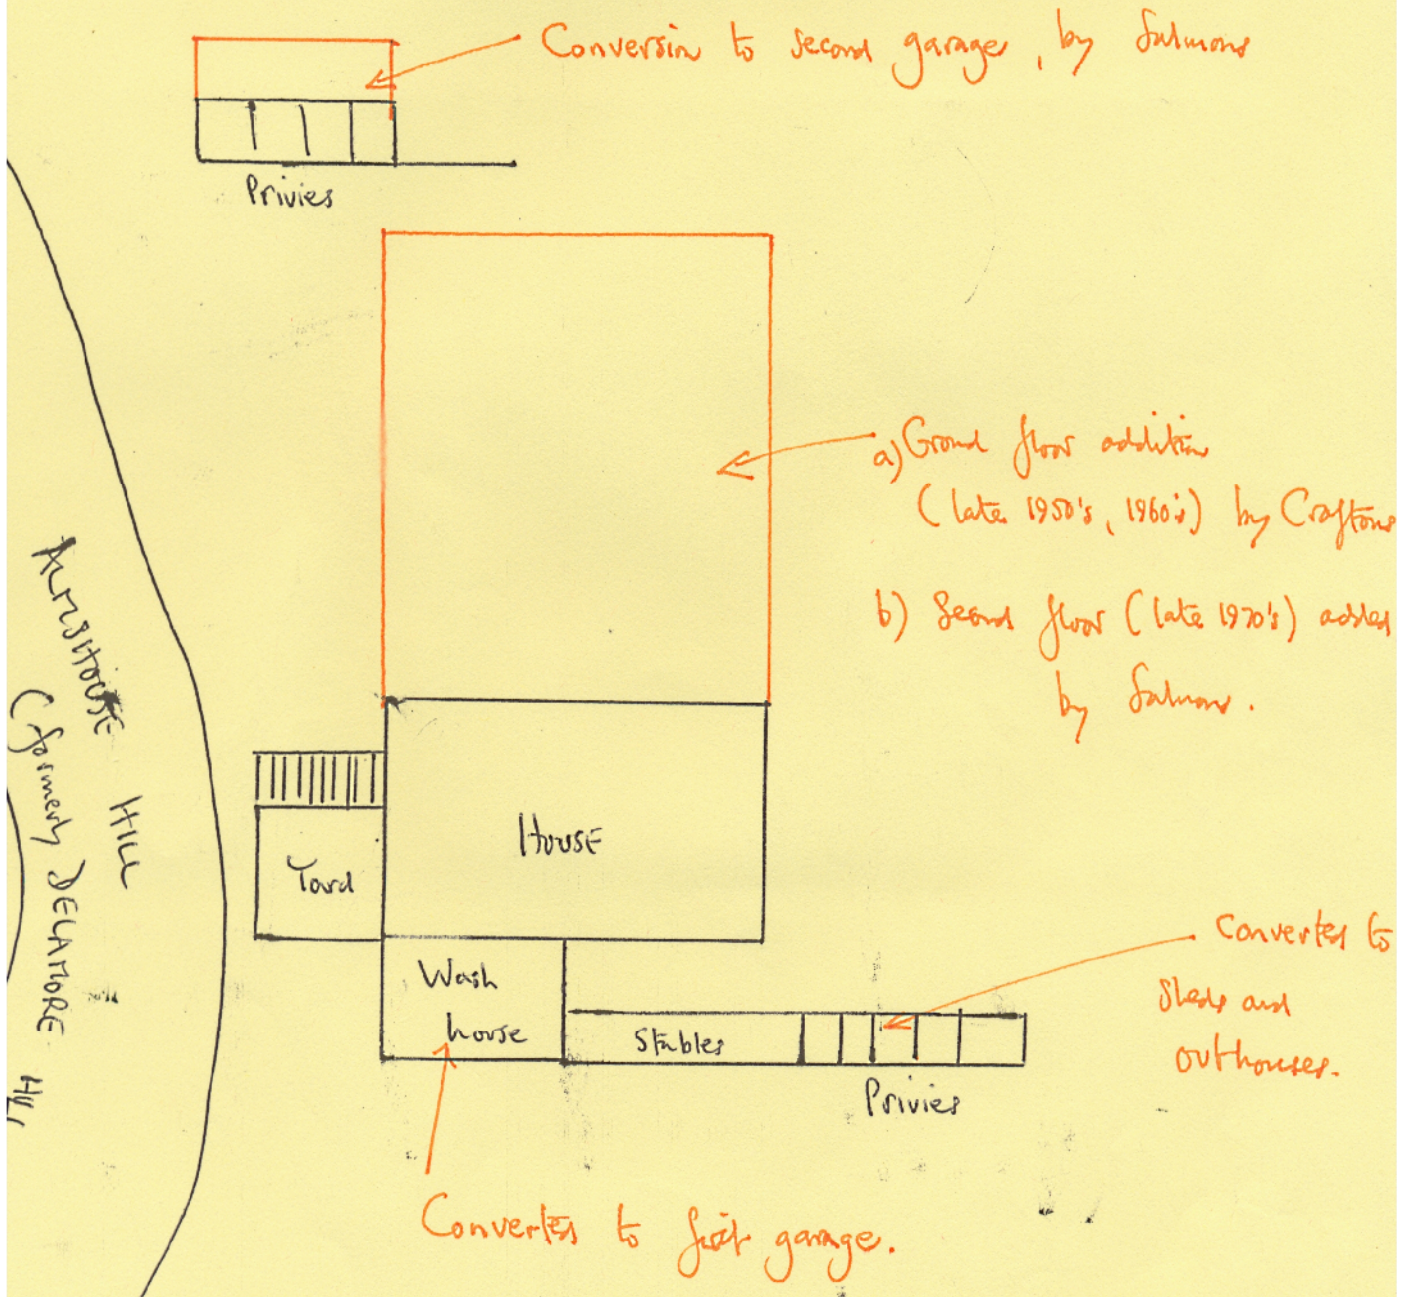 Conversion to second garage, by Salmons
Privies
a) Ground floor addition
(late 1950's, 1960's) by Craftons
b) Second floor (late 1970's) added
by Salmons.
ALMSHOUSE HILL
(formerly DELAMORE
House
Yard
Wash
house
Stables
Privies
Converted to
sheds and
outhouses.
Converted to first garage.